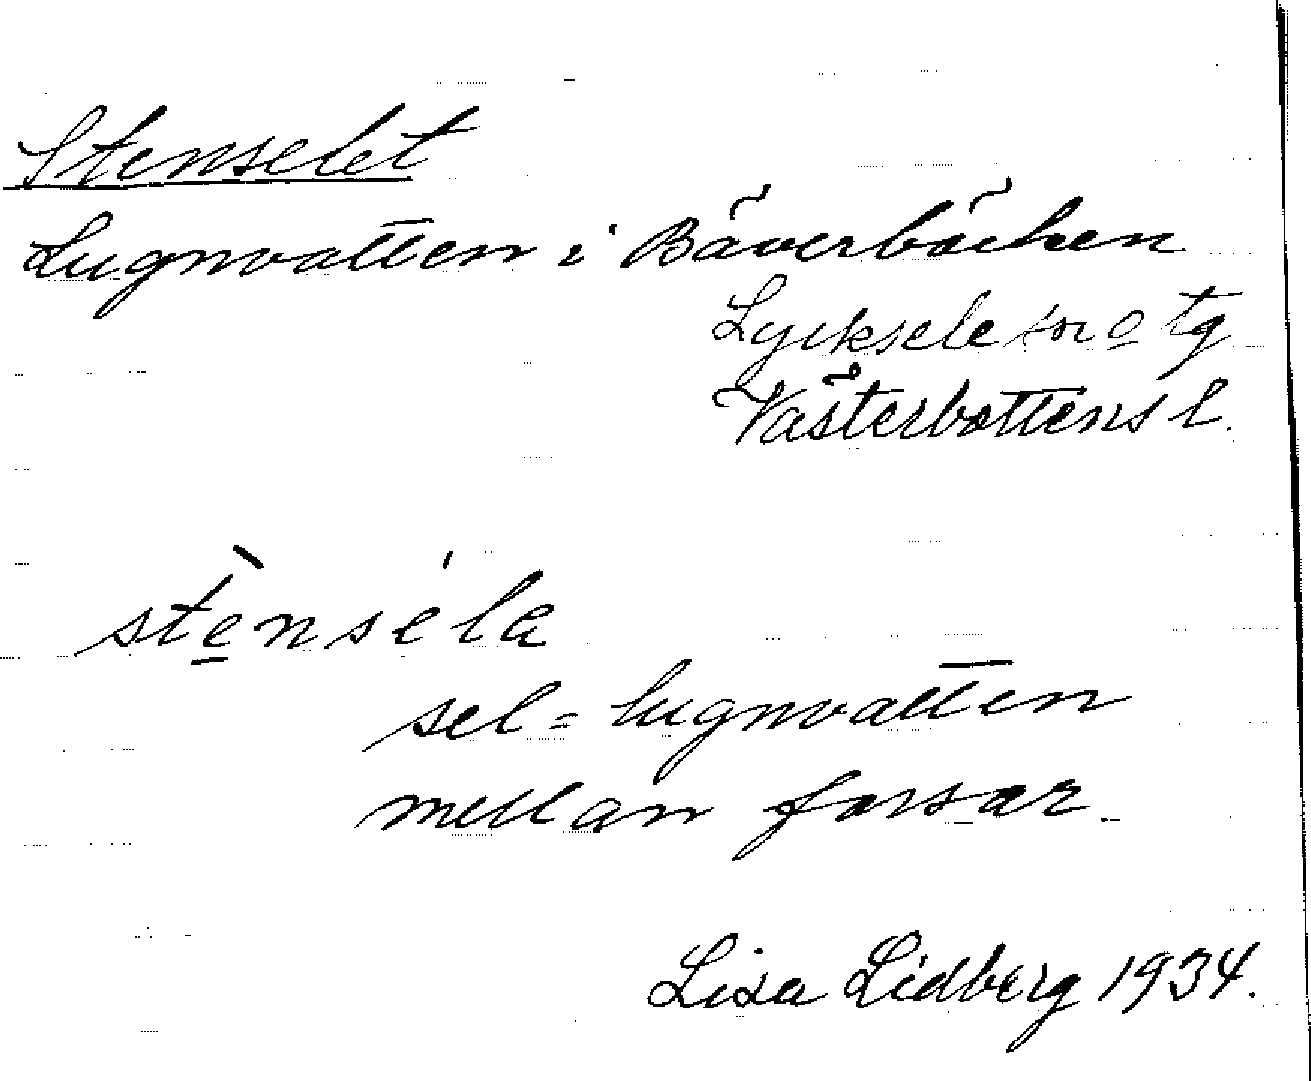 Stenselet
Lugnvatten i Bäverbäcken
Lycksele sn o tg
Västerbottens l.
stè̱nséla
sel = lugnvatten
mellan forsar.
Lisa Lidberg 1934.